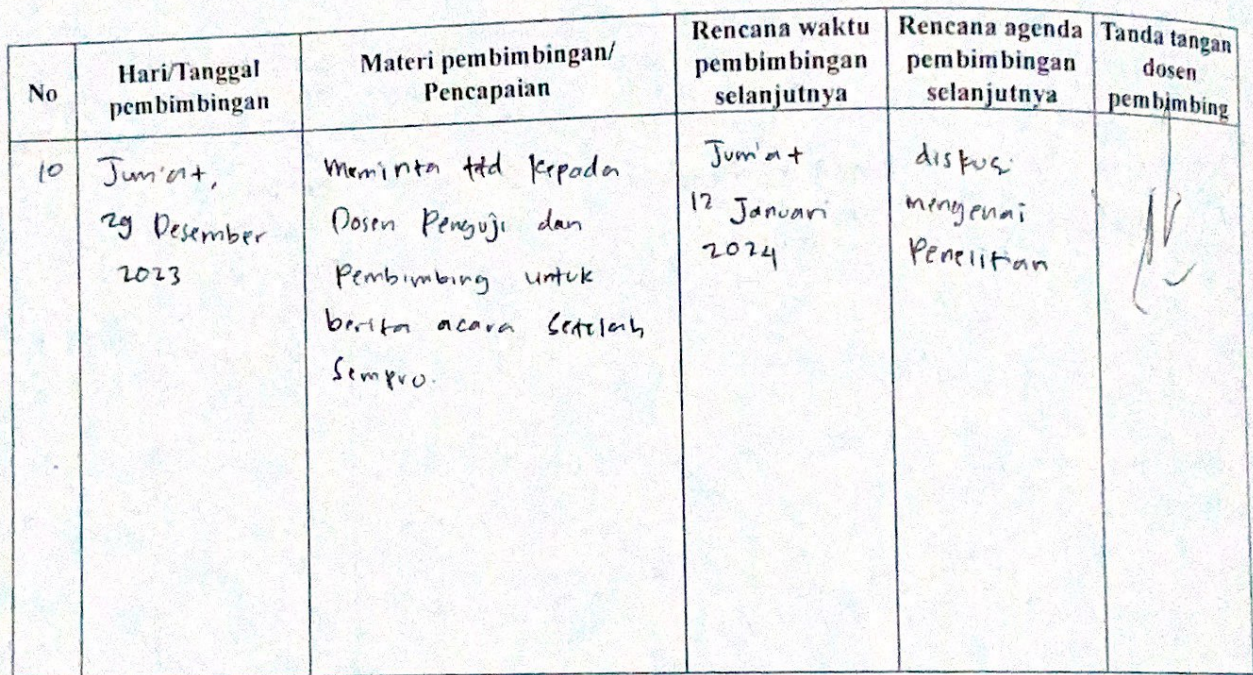 No
Hari/Tanggal
pembimbingan
Materi pembimbingan/
Pencapaian
Rencana waktu
pembimbingan
selanjutnya
Rencana agenda
pembimbingan
selanjutnya
Tanda tangan
dosen
pembimbing
10
Jum'at,
29 Desember
2023
Meminta ttd kepada
Dosen Penguji dan
Pembimbing untuk
berita acara setelah
Sempro.
Jum'at
12 Januari
2024
diskusi
mengenai
Penelitian